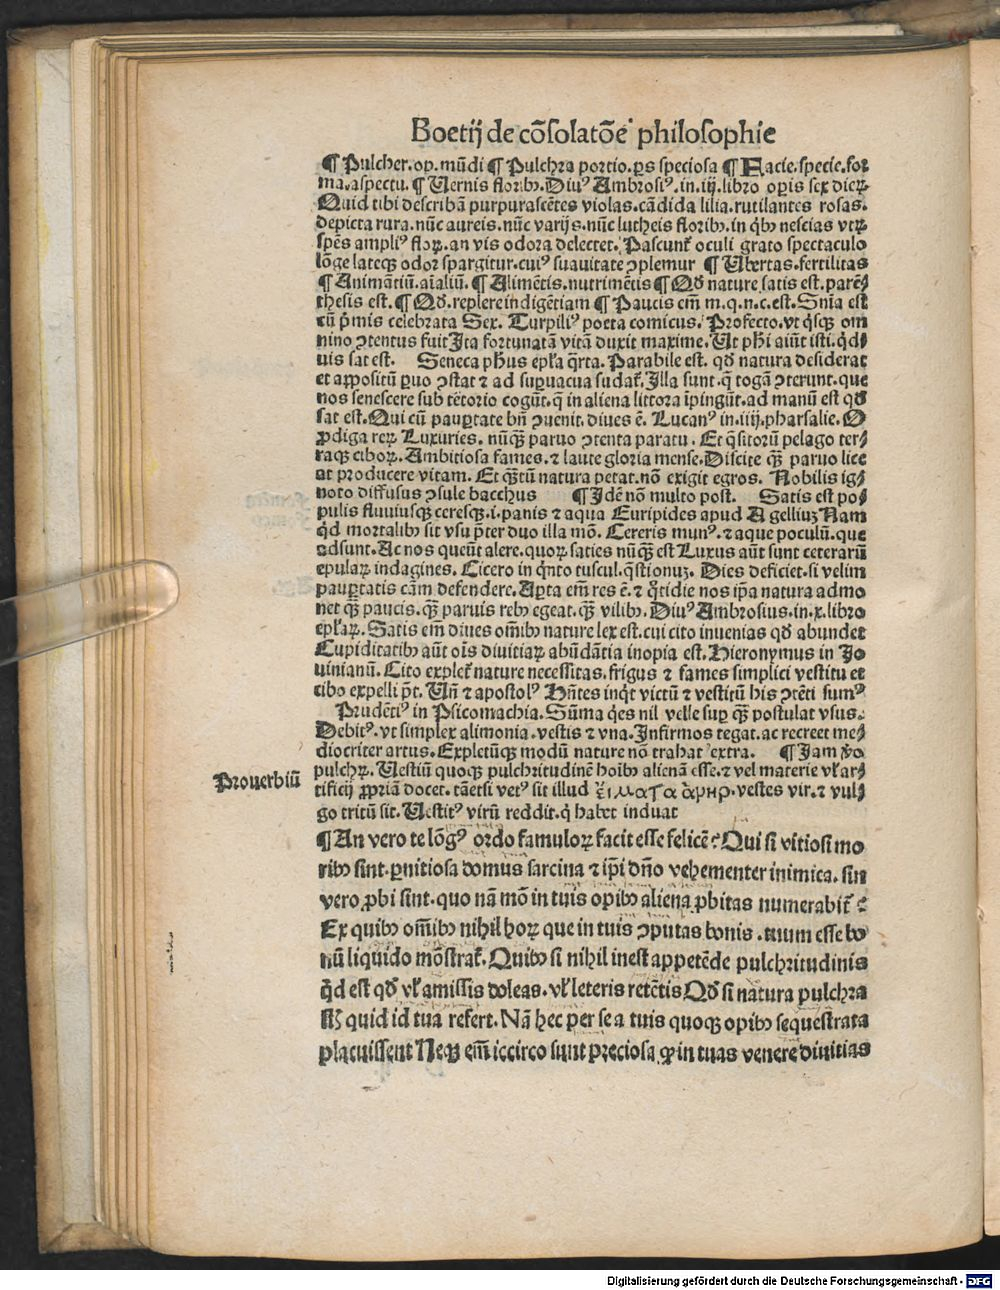 Boetij de cõsolatõe philosophie
¶ Pulcher. op. mũdi ¶ Pulchra portio. ꝑs speciosa ¶ Facie. specie. for
ma. aspectu. ¶ Uernis floribꝰ. Diuꝰ Ambrosiꝰ. in. iij. libro oꝑis sex dieꝝ
Quid tibi describã purpurascẽtes violas. cãdida lilia. rutilantes rosas.
depicta rura. nũc aureis. nũc varijs. nũc lutheis floribꝰ. in q̃bꝰ nescias vtꝝ
spẽs ampliꝰ floꝝ. an vis odora delectet. Pascunt᷑ oculi grato spectaculo
lõge lateqꝫ odor spargitur. cuiꝰ suauitate ꝯplemur ¶ Ubertas. fertilitas
¶ Animantiũ. aĩaliũ. ¶ Alimẽtis. nutrimẽtis ¶ Qđ nature satis est. parẽ⸗
thesis est. ¶ Qđ. replere indigẽtiam ¶ Paucis em̃ m. q. n. c. est. Sñia est
cũ p̃mis celebrata Sex. Turpiliꝰ poeta comicus. Profecto. vt q̃sqꝫ om
nino ꝯtentus fuit Ita fortunatã vitã duxit maxime. Ut ph̃i aiũt isti. q̃d⸗
uis sat est. Seneca ph̃us ep̃la q̃rta. Parabile est. qđ natura desiderat
et appositũ ꝑuo ꝯstat ⁊ ad suꝑuacua sudat᷑. Illa sunt. q̃ togã ꝯterunt. que
nos senescere sub tẽtorio cogũt. q̃ in aliena littora ĩpingũt. ad manũ est qđ
sat est. Qui cũ pauꝑtate bñ ꝯuenit. diues ẽ. Lucanꝰ in. iiij. pharsalie. O
ꝓdiga reꝝ Luxuries. nũqꝫ̃ paruo ꝯtenta paratu. Et q̃sitorũ pelago ter⸗
raqꝫ ciboꝝ. Ambitiosa fames. ⁊ laute gloria mense. Discite qꝫ̃ paruo lice
at producere vitam. Et qꝫ̃tũ natura petat. nõ exigit egros. Nobilis ig⸗
noto diffusus ꝯsule bacchus ¶ Idẽ nõ multo post. Satis est po⸗
pulis fluuiusqꝫ ceresqꝫ. i. panis ⁊ aqua Euripides apud A gelliuꝫ Nam
q̃d mortalibꝰ sit vsu p̃ter duo illa mõ. Cereris munꝰ. ⁊ aque poculũ. que
adsunt. Ac nos queũt alere. quoꝝ saties nũqꝫ̃ est Luxus aũt sunt ceterarũ
epulaꝝ indagines. Cicero in q̃nto tuscul. q̃stionuꝫ. Dies deficiet. si velim
pauꝑtatis cãm defendere. Aꝑta em̃ res ẽ. ⁊ q̃tidie nos ip̃a natura admo
net qꝫ̃ paucis. qꝫ̃ paruis rebꝰ egeat. qꝫ̃ vilibꝰ. Diuꝰ Ambrosius. in. x. libro
ep̃laꝝ. Satis em̃ diues om̃ibꝰ nature lex est. cui cito inuenias qđ abundet
Cupiditatibꝰ aũt oĩs diuitiaꝝ abũdãtia inopia est. Hieronymus in Jo
uinianũ. Cito explet᷑ nature necessitas. frigus ⁊ fames simplici vestitu et
cibo expelli p̃t. Uñ ⁊ apostolꝰ Hñtes inq̃t victũ ⁊ vestitũ his ꝯtẽti sumꝰ
Prudẽtiꝰ in Psicomachia. Sũma q̃es nil velle suꝑ qꝫ̃ postulat vsus.
Debitꝰ. vt simplex alimonia. vestis ⁊ vna. Infirmos tegat. ac recreet me⸗
diocriter artus. Expletũqꝫ modũ nature nõ trahat extra. ¶ Jam ṽo
pulchꝝ. Uestiũ quoqꝫ pulchritudinẽ hoĩbꝰ alienã esse. ⁊ vel materie vl᷑ ar⸗
tificij ꝓpriã docet. tãetsi vetꝰ sit illud εἵματα ἀνηρ. vestes vir. ⁊ vul⸗
go tritũ sit. Uestitꝰ virũ reddit. q̃ habet induat
Prouerbiũ
¶ An vero te lõgꝰ ordo famuloꝝ facit esse felicẽ? Qui si vitiosi mo
ribꝰ sint. ꝑnitiosa domus sarcina ⁊ ip̃i dño vehementer inimica. sin
vero ꝓbi sint. quo nã mõ in tuis opibꝰ aliena ꝓbitas numerabit᷑?
Ex quibꝰ om̃ibꝰ nihil hoꝝ que in tuis ꝯputas bonis. tuum esse bo
nũ liquido mõstrat᷑. Quibꝰ si nihil inest appetẽde pulchritudinis
q̃d est qđ vl᷑ amissis doleas. vl᷑ leteris retẽtis Qđ si natura pulchra
sũt quid id tua refert. Nã hec per se a tuis quoqꝫ opibꝰ sequestrata
placuissent Neqꝫ em̃ iccirco sunt preciosa ꝙ in tuas venere diuitias
Digitalisierung gefördert durch die Deutsche Forschungsgemeinschaft - DFG